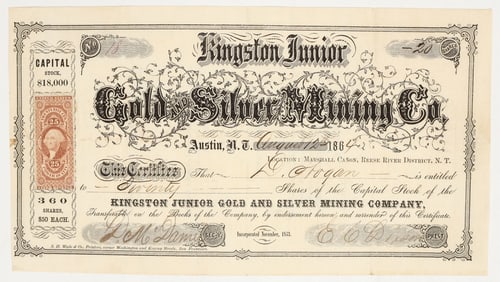 No 18
—20— Shs
Kingston Junior
Gold and Silver Mining Co.
CAPITAL
STOCK,
$18,000
25
25
360
SHARES,
$50 EACH.
Austin, N. T. August 12 1864
LOCATION: MARSHALL CAÑON, REESE RIVER DISTRICT, N. T.
This Certifies That D. Hogan is entitled
to Twenty Shares of the Capital Stock of the
KINGSTON JUNIOR GOLD AND SILVER MINING COMPANY,
Transferable on the Books of the Company, by endorsement hereon and surrender of this Certificate.
SEC'Y.
Incorporated November, 1863.
E. C.
PREST.